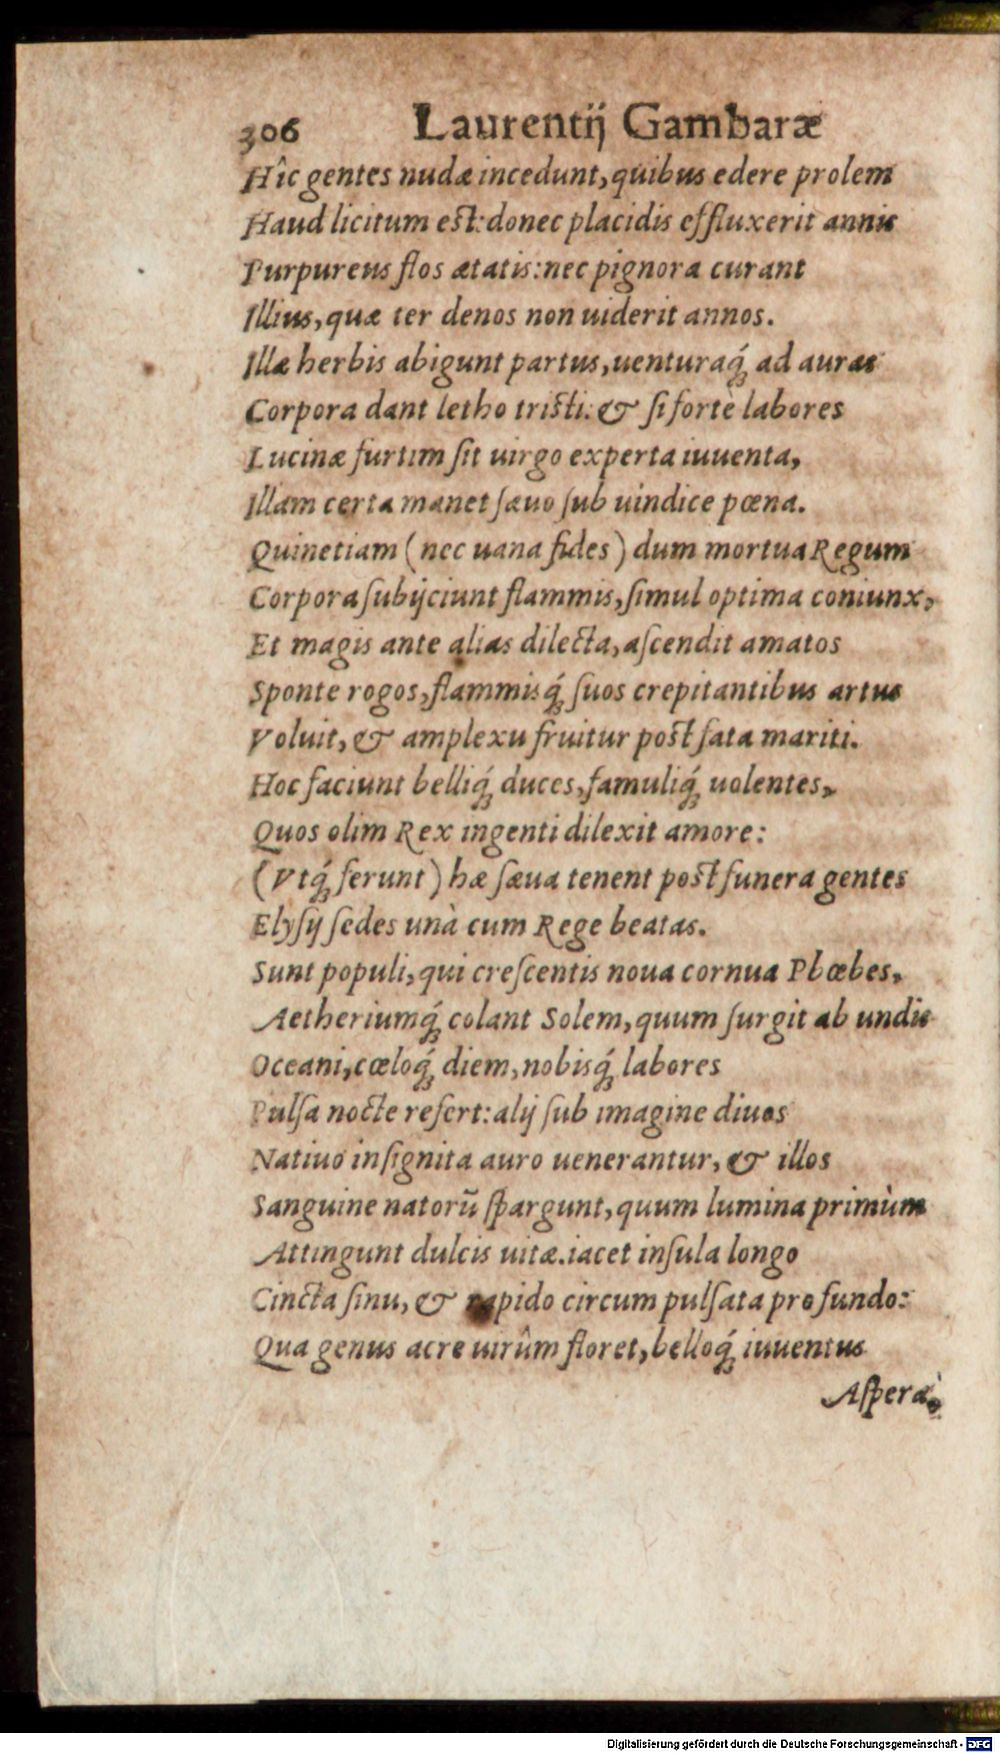 306 Laurentij Gambaræ
Hîc gentes nudæ incedunt, quibus edere prolem
Haud licitum est: donec placidis effluxerit annis
Purpureus flos ætatis: nec pignora curant
Illius, quæ ter denos non uiderit annos.
Illæ herbis abigunt partus, uenturaq́; ad auras
Corpora dant letho tristi: & si fortè labores
Lucinæ furtim sit uirgo experta iuuenta,
Illam certa manet sæuo sub uindice pœna.
Quinetiam (nec uana fides) dum mortua Regum
Corpora subijciunt flammis, simul optima coniunx,
Et magis ante alias dilecta, ascendit amatos
Sponte rogos, flammisq́; suos crepitantibus artus
Voluit, & amplexu fruitur post fata mariti.
Hoc faciunt belliq́; duces, famuliq́; uolentes,
Quos olim Rex ingenti dilexit amore:
(Vtq́; ferunt) hæ sæua tenent post funera gentes
Elysij sedes unà cum Rege beatas.
Sunt populi, qui crescentis noua cornua Phœbes,
Aetheriumq́; colant Solem, quum surgit ab undis
Oceani, cœloq́; diem, nobisq́; labores
Pulsa nocte refert: alij sub imagine diuos
Natiuo insignita auro uenerantur, & illos
Sanguine natorũ spargunt, quum lumina primùm
Attingunt dulcis uitæ. iacet insula longo
Cincta sinu, & rapido circum pulsata profundo:
Qua genus acre uirûm floret, belloq́; iuuentus
Aspera,
Digitalisierung gefördert durch die Deutsche Forschungsgemeinschaft - DFG